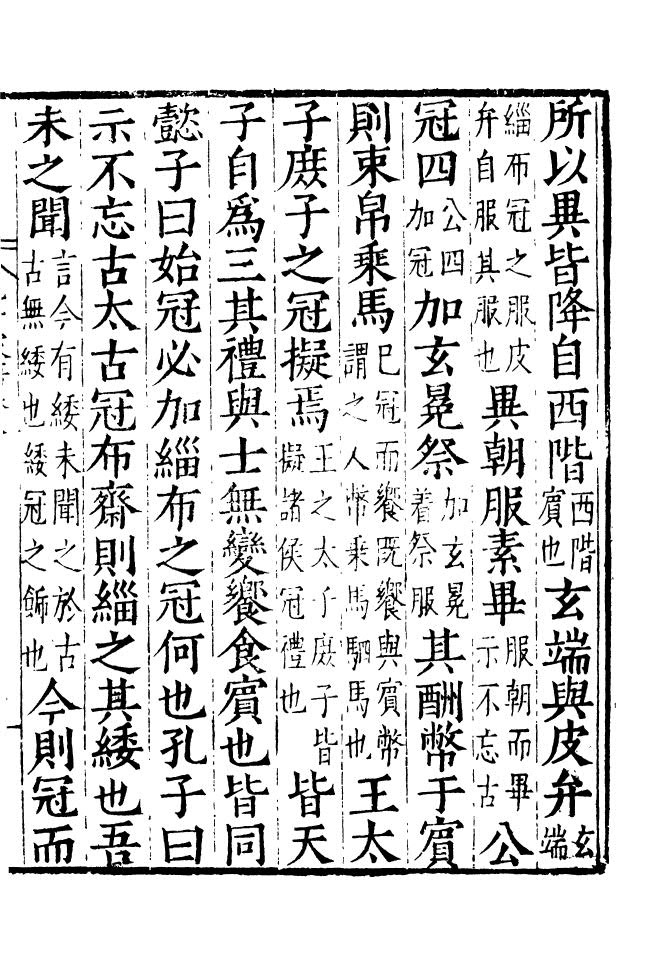 所以異皆降自西階西階賓也玄端與皮弁玄端
緇布冠之服皮弁自服其服也異朝服素畢服朝而畢示不忘古公
冠四公四加冠加玄冕祭加玄冕着祭服其酬幣于賓
則束帛乗馬已冠而饗既饗與賓幣謂之人幣乗馬駟馬也王太
子庶子之冠擬焉王之太子庶子皆擬諸侯冠禮也皆天
子自爲三其禮與士無變饗食賓也皆同
懿子曰始冠必加緇布之冠何也孔子曰
示不忘古太古冠布齋則緇之其緌也吾
未之聞言今有緌未聞之於古古無緌也緌冠之飾也今則冠而